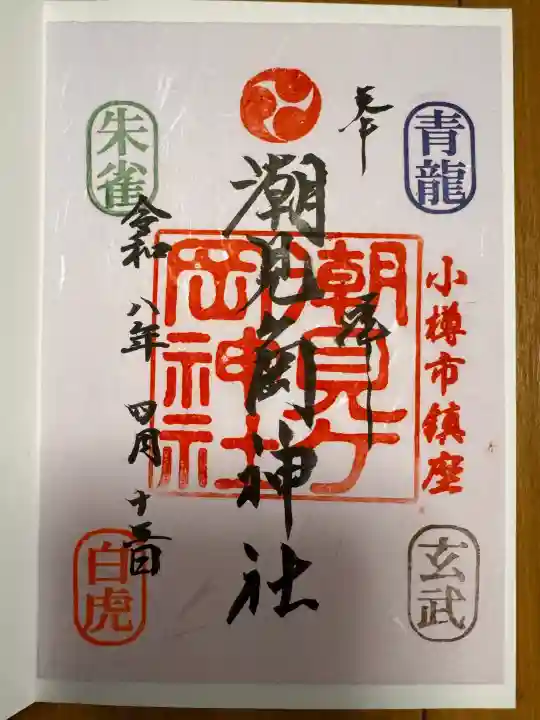 奉拝
青龍
小樽市鎮座
玄武
潮見岡神社
潮見ケ岡神社
朱雀
令和八年四月十五日
白虎